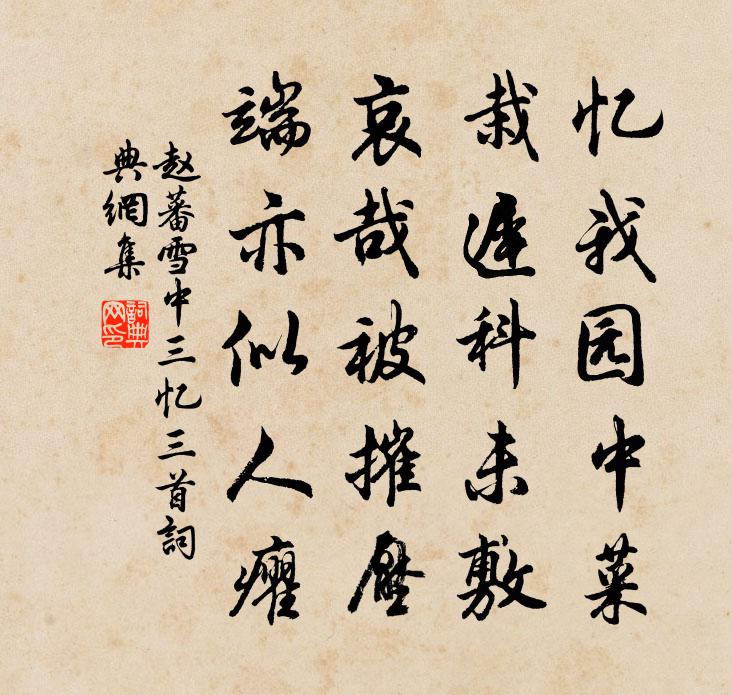 忆我园中菜
栽遲科未敷
哀哉被摧壓
端亦似人癯
赵蕃雪中三忆三首詞
典網集
詞典
网印